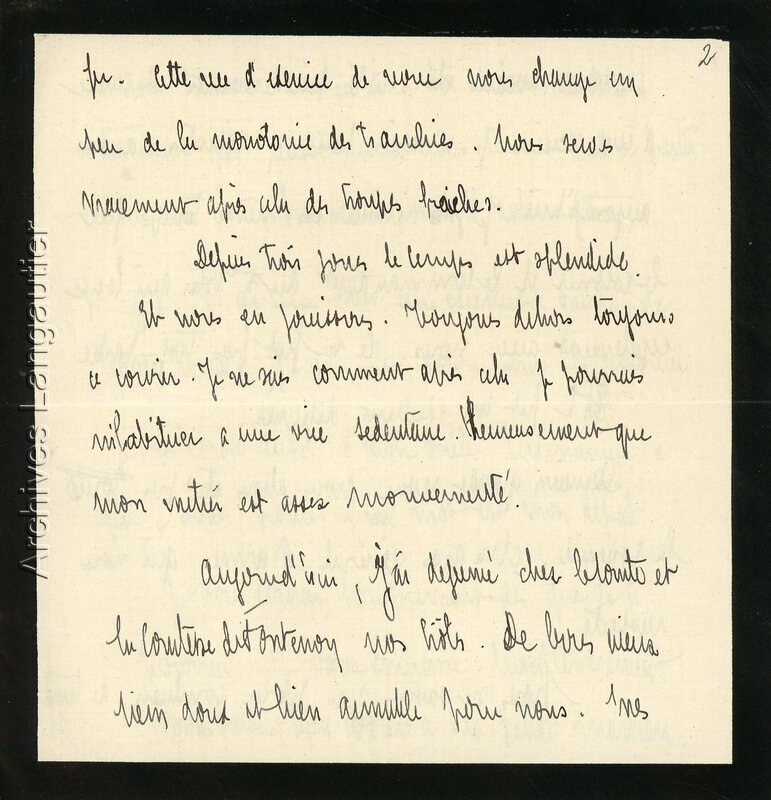 2
fr. Cette vie d'exercice de nous nous change un
peu de la monotonie des tranchées. Nous serons
vraiement après cela des troupes fraiches.
Depuis trois jours le temps est splendide.
Et nous en jouissons. Toujours dehors toujours
a courir. Je ne sais comment après cela je pourrais
m'habituer a une vie sedentaire. Heureusement que
mon metier est assez mouvementé.
Aujourd'hui, j'ai dejeuné chez le Comte et
la Comtesse de Fontenoy nos hôtes. De bons vieux
bien doux et bien aimable pour nous. Mes
Archives Langautier